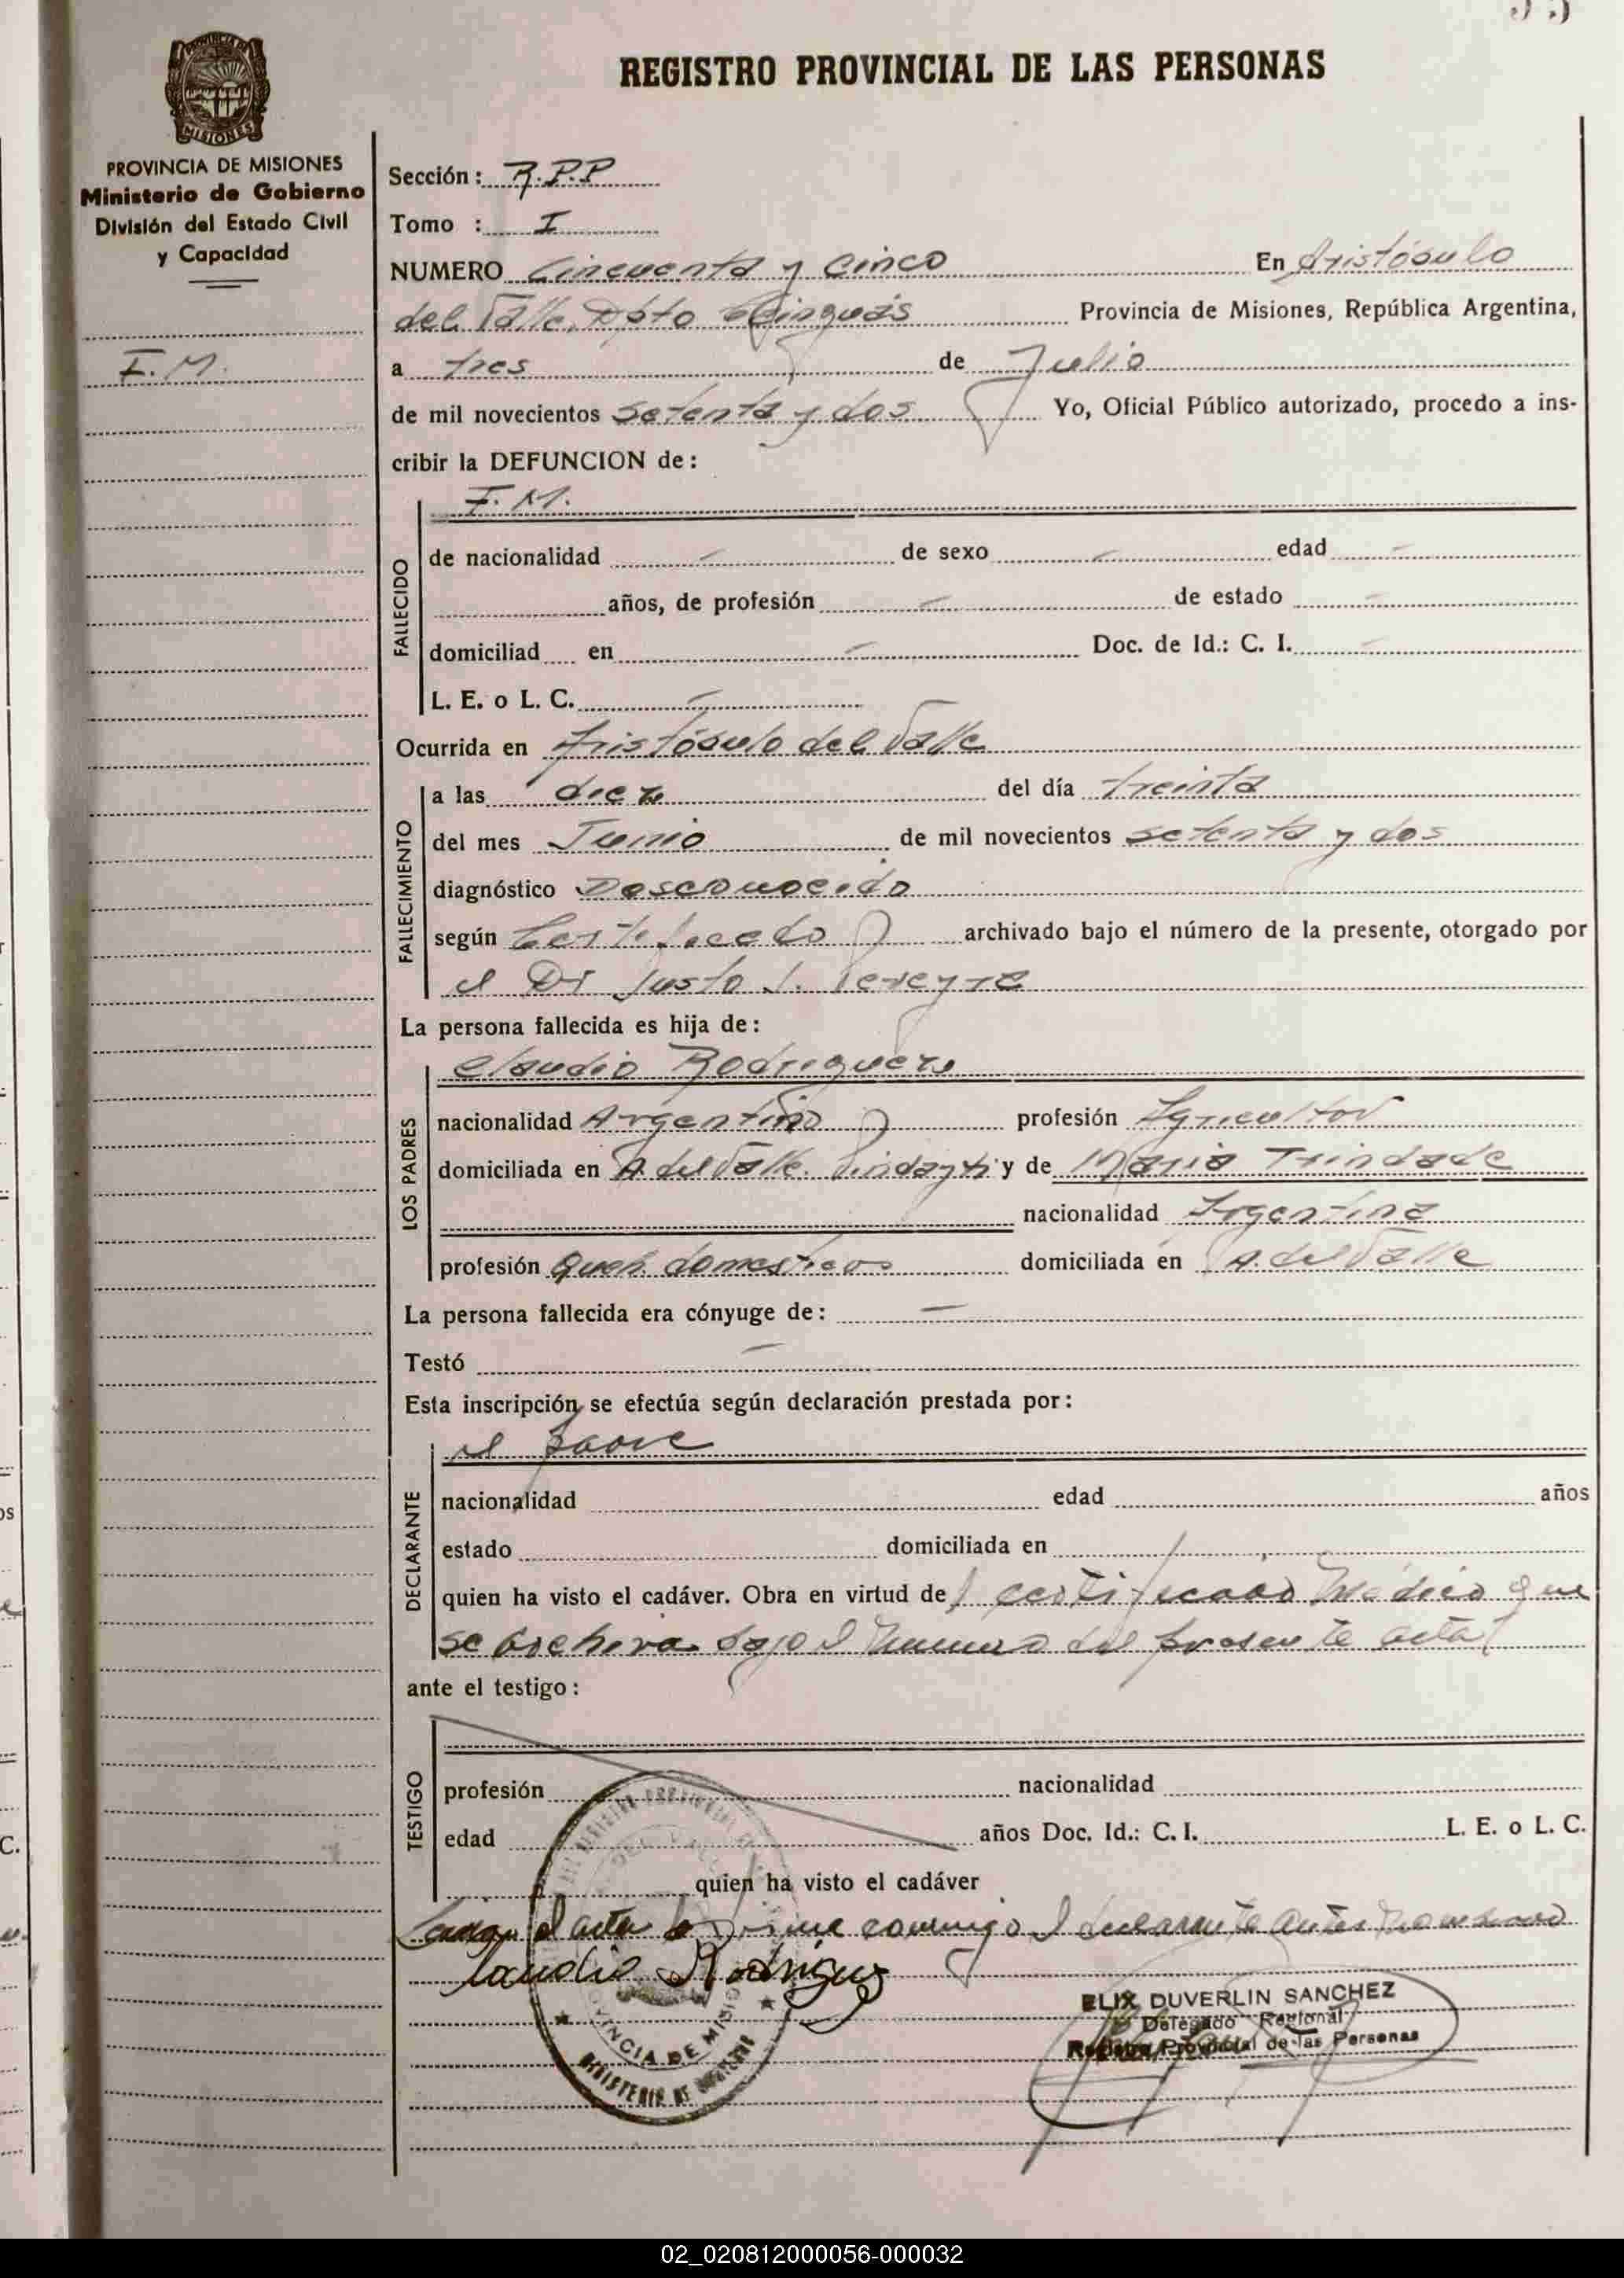 REGISTRO PROVINCIAL DE LAS PERSONAS
MISIONES
PROVINCIA DE MISIONES
Ministerio de Gobierno
División del Estado Civil
y Capacidad
F.M.
Sección: R.P.P
Tomo : I
NUMERO Cincuenta y cinco En Aristóbulo
del Valle, Dpto Cainguás Provincia de Misiones, República Argentina,
a tres de Julio
de mil novecientos setenta y dos Yo, Oficial Público autorizado, procedo a ins-
cribir la DEFUNCION de:
F. M.
FALLECIDO
de nacionalidad - de sexo - edad -
años, de profesión - de estado -
domiciliad en - Doc. de Id.: C. I. -
L. E. o L. C. -
Ocurrida en Aristóbulo del Valle
FALLECIMIENTO
a las diez del día treinta
del mes Junio de mil novecientos setenta y dos
diagnóstico Desconocido
según Certificado archivado bajo el número de la presente, otorgado por
el Dr Justo J. Pereyra
La persona fallecida es hija de:
LOS PADRES
Claudio Rodriguez
nacionalidad Argentino profesión Agricultor
domiciliada en A. del Valle. Pindayti y de Maria Trindade
nacionalidad Argentina
profesión Queh. domesticos domiciliada en A. del Valle
La persona fallecida era cónyuge de: -
Testó -
Esta inscripción se efectúa según declaración prestada por:
DECLARANTE
el padre
nacionalidad edad años
estado domiciliada en
quien ha visto el cadáver. Obra en virtud de certificado Medico que
se archiva bajo el numero del presente acta
ante el testigo:
TESTIGO
profesión nacionalidad
edad años Doc. Id.: C. I. L. E. o L. C.
quien ha visto el cadáver
el acta la firma conmigo el declarante antes nombrado
Claudio Rodriguez
PROVINCIA DE MISIONES
MINISTERIO DE GOBIERNO
ELIX DUVERLIN SANCHEZ
Delegado Regional
Registro Provincial de las Personas
02_020812000056-000032